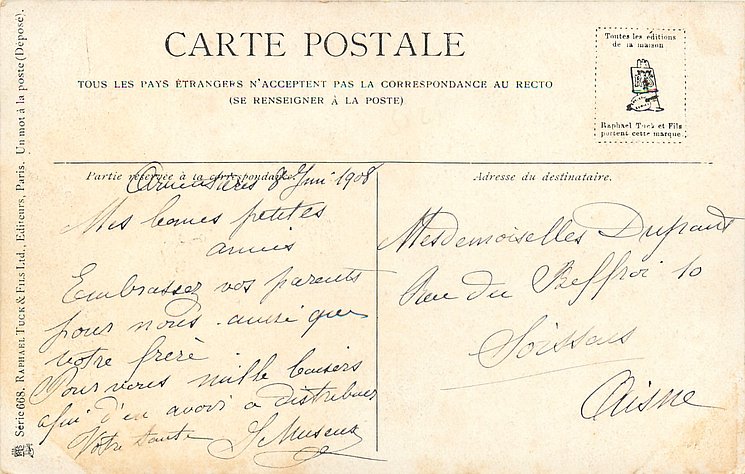 CARTE POSTALE
TOUS LES PAYS ÉTRANGERS N'ACCEPTENT PAS LA CORRESPONDANCE AU RECTO
(SE RENSEIGNER À LA POSTE)
Toutes les éditions
de la maison
Raphael Tuck et Fils
portent cette marque
Série 668. RAPHAEL TUCK & FILS LTD., Editeurs, Paris. Un mot à la poste (Déposé).
Partie réservée à la correspondance.
8 Juin 1908
Mes bonnes petites
amies
Embrassez vos parents
pour nous aussi que
votre frère
Pour vous mille baisers
afin d'en avoir a distribuer
Votre tante
Adresse du destinataire.
Mesdemoiselles Dupont
Rue du Beffroi 10
Soissons
Aisne